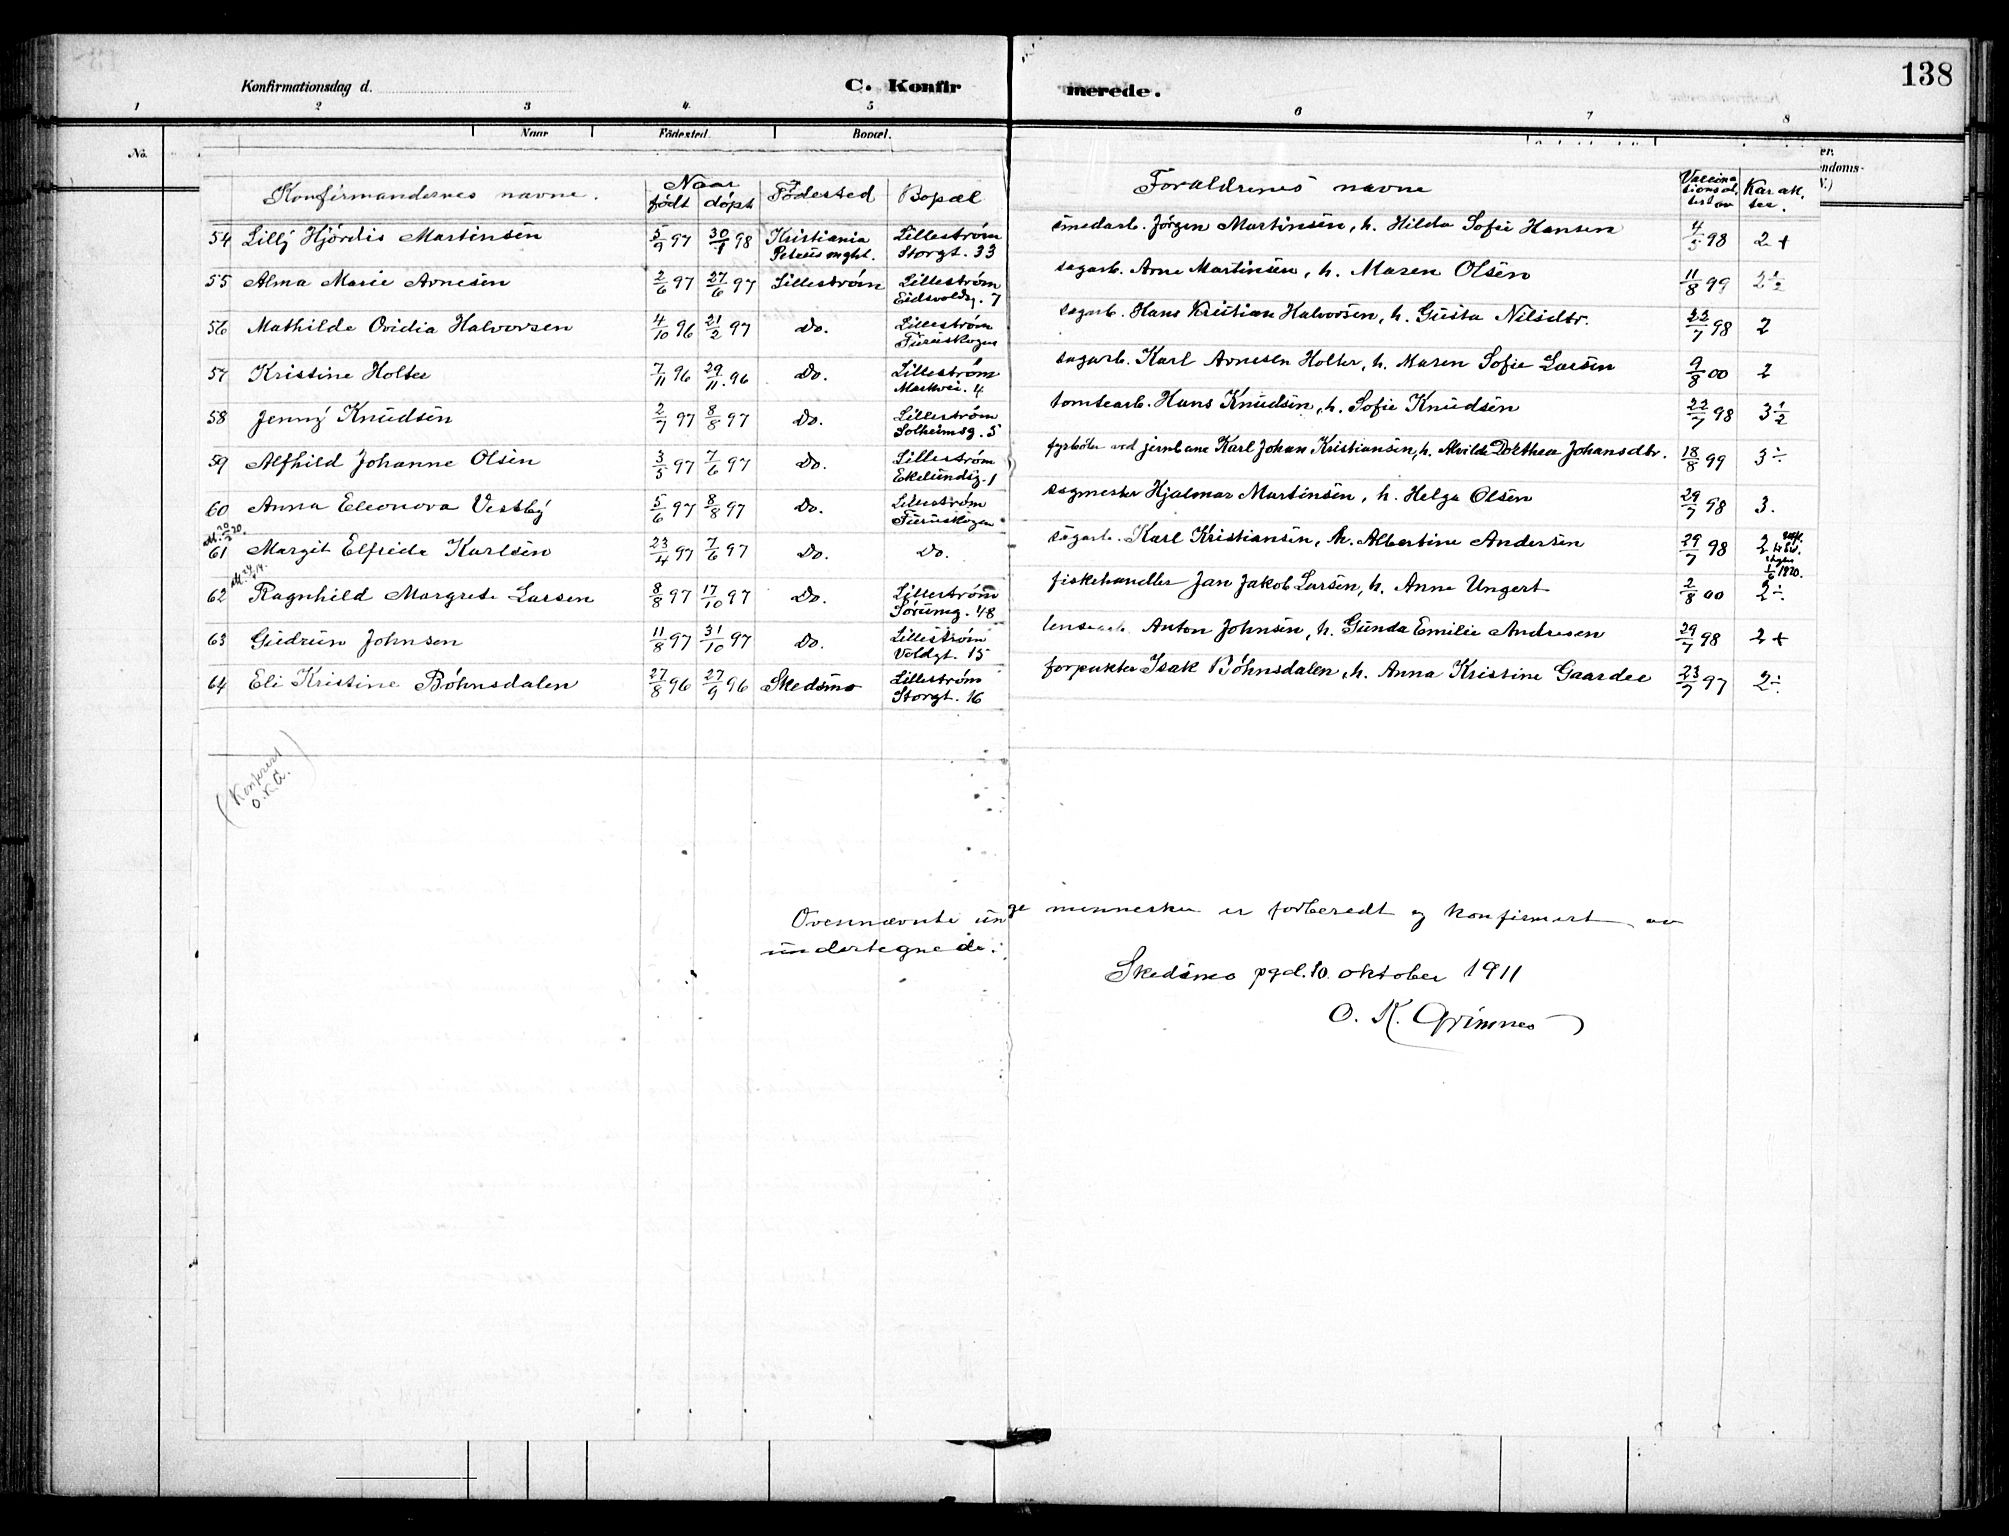 138
Konfirmationsdag d. C. Konfirmerede.
1 2 3 4 5 6 7 8
No. Naar Fødested. Bopæl.
er.
ndoms-
Konfirmandernes navne. Naar født døpt Fødested Bopæl Forældrenes navne Vaccinationsattest av Karakter.
54 Lilly Hjørdis Martinsen 5/7 97 30/1 98 Kristiania Lillestrøm Storgt. 33 smedarb. Jørgen Martinsen, h. Hilda Sofie Hansen 4/5 98 2+
55 Alma Marie Arnesen 2/6 97 27/6 97 Lillestrøm Lillestrøm Eidsvoldg. 7 sagarb. Arne Martinsen, h. Maren Olsen 11/8 99 2 1/2
56 Mathilde Ovidia Halvorsen 4/10 96 21/2 97 Do. Lillestrøm Furuskogen sagarb. Hans Kristian Halvorsen, h. Gusta Nilsdtr. 22/7 98 2
57 Kristine Holter 7/11 96 29/11 96 Do. Lillestrøm Markvei. 4 sagarb. Karl Arnesen Holter, h. Maren Sofie Larsen 9/8 00 2
58 Jenny Knudsen 2/7 97 8/8 97 Do. Lillestrøm Solheimsg. 5 tomtearb. Hans Knudsen, h. Sofie Knudsen 22/7 98 3 1/2
59 Alfhild Johanne Olsen 3/5 97 7/6 97 Do. Lillestrøm Ekelundsg. 1 fyrbøter ved jernbane Karl Johan Kristiansen, h. Alvilde Dorthea Johansdtr. 18/8 99 3÷
60 Anna Eleonora Vestby 5/6 97 8/8 97 Do. Lillestrøm Furuskogen sagmester Hjalmar Martinsen, h. Helga Olsen 29/7 98 3.
61 Margit Elfride Karlsen 23/4 97 7/6 97 Do. Do. sagarb. Karl Kristiansen, h. Albertine Andersen 29/7 98 2
62 Ragnhild Margrete Larsen 8/8 97 17/10 97 Do. Lillestrøm Sørumg. 48 fiskehandler Jan Jakob Larsen, h. Anne Ungert 2/8 00 2÷
63 Gudrun Johnsen 11/8 97 31/10 97 Do. Lillestrøm Voldgt. 15 Anton Johnsen, h. Gunda Emilie Andresen 29/7 98 2+
64 Eli Kristine Bøhnsdalen 27/8 96 27/9 96 Skedsmo Lillestrøm Storgt. 16 forpakter Isak Bøhnsdalen, h. Anna Kristine Gaarder 23/7 97 2÷
(Konferert
O.K.G.)
Ovennævnte unge mennesker er forberedt og konfirmert av
undertegnede.
Skedsmo pgd. 10 oktober 1911
O. K. Grimnes